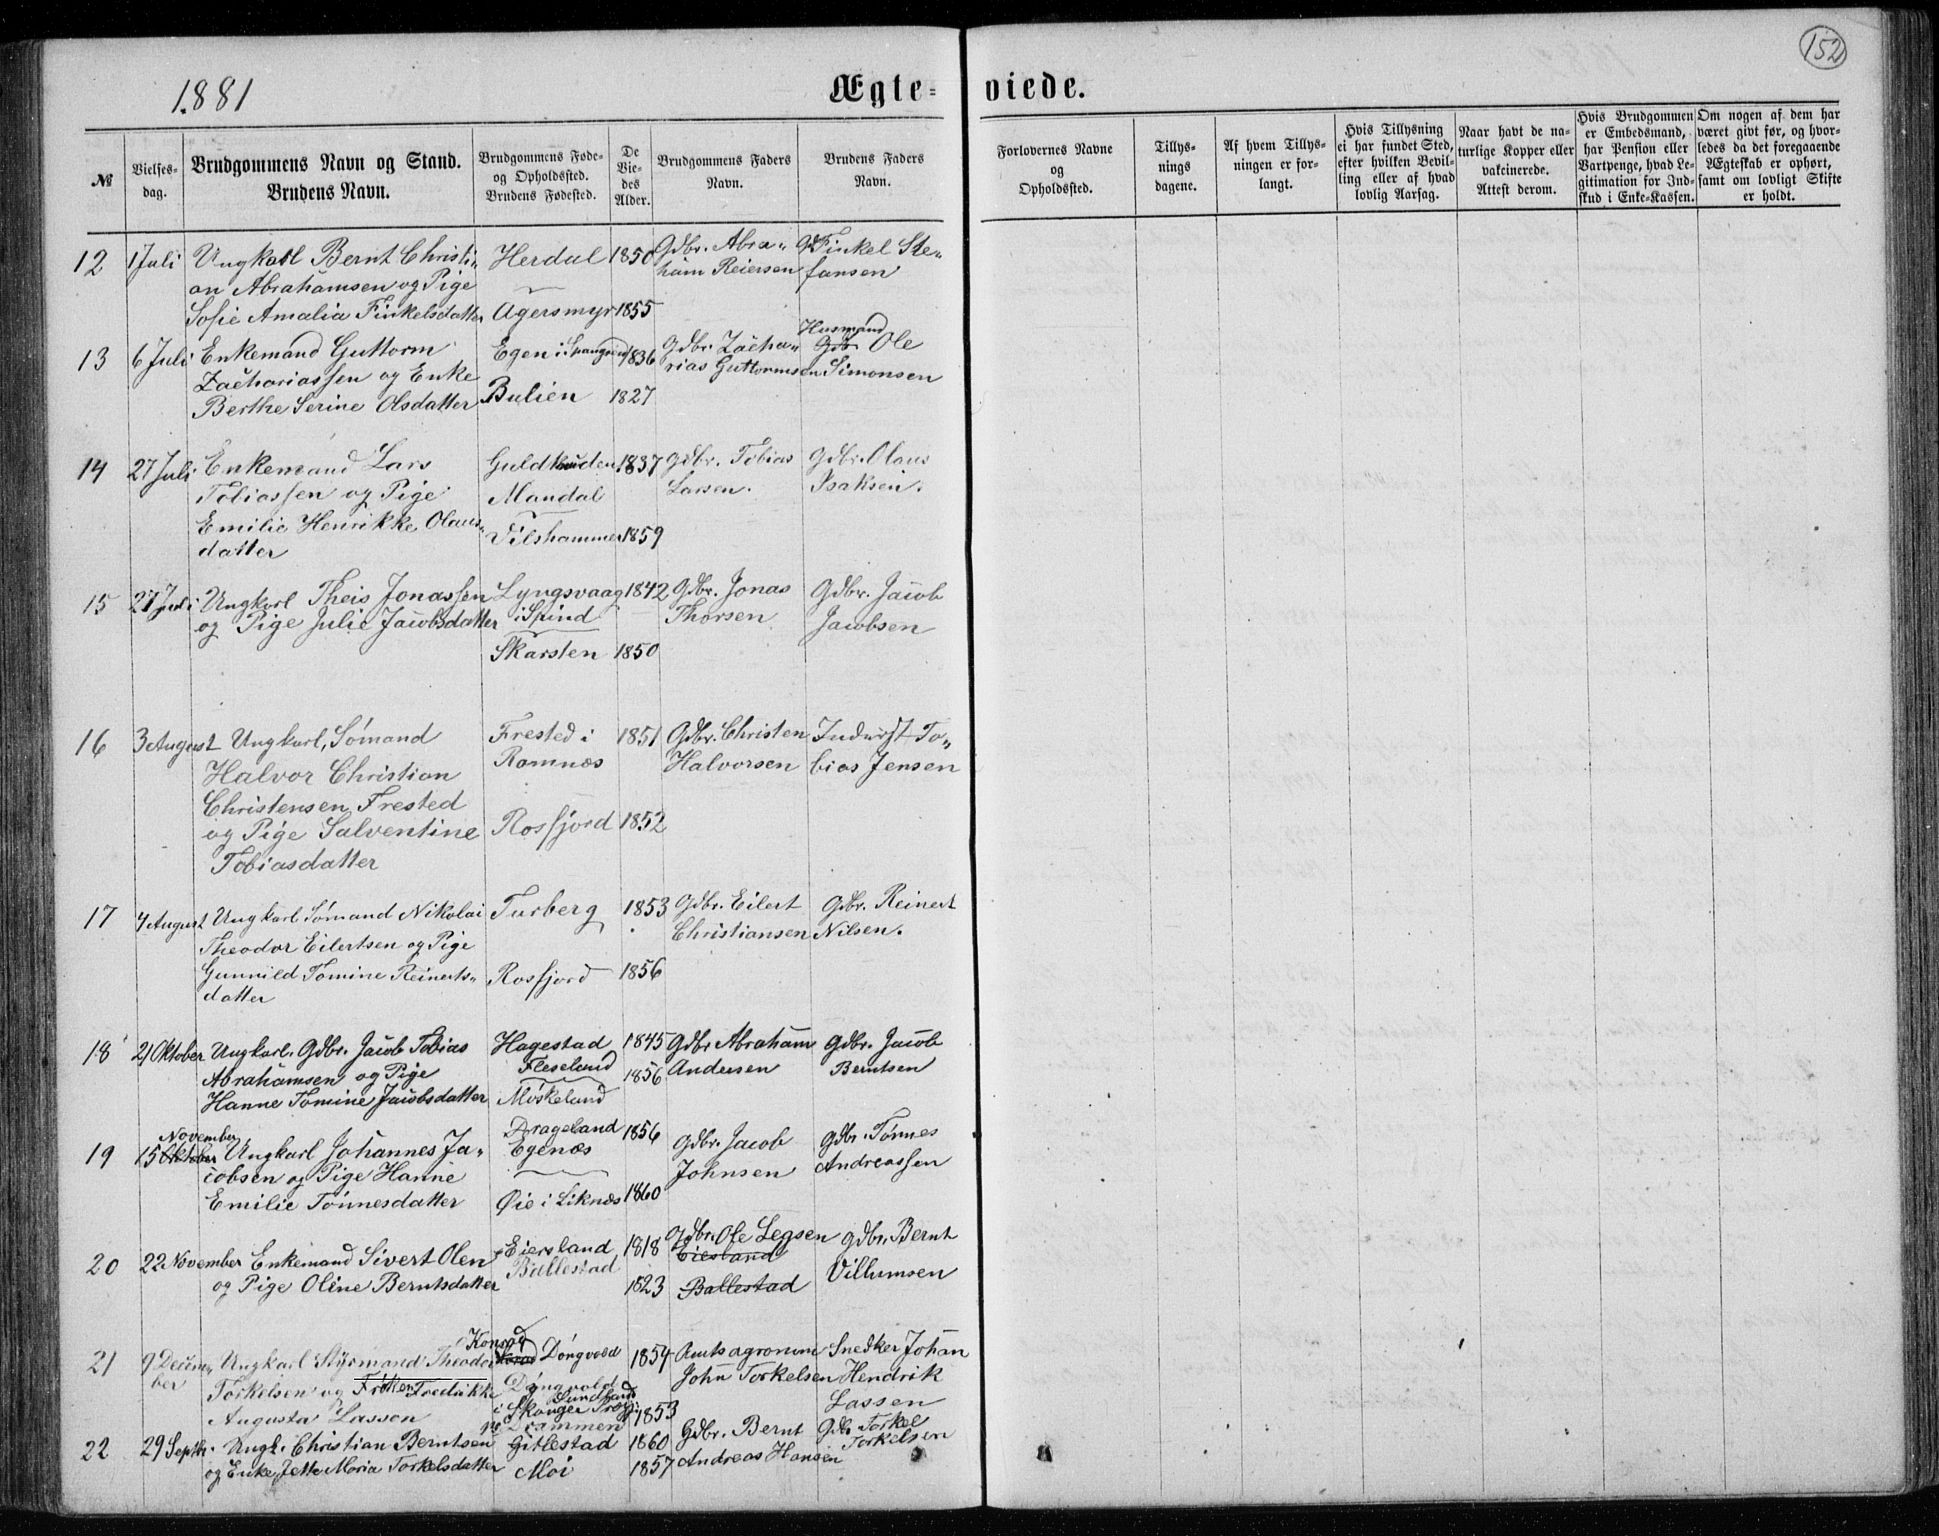 152
1881
Ægte-viede.
№
Vielses-dag.
Brudgommens Navn og Stand.
Brudens Navn.
Brudgommens Føde- og Opholdssted.
Brudens Fødested.
De Vie-des Alder.
Brudgommens Faders Navn.
Brudens Faders Navn.
Forlovernes Navne og Opholdssted.
Tillys-nings dagene.
Af hvem Tillys-ningen er for-langt.
Hvis Tillysning ei har fundet Sted, efter hvilken Bevil-ling eller af hvad lovlig Aarsag.
Naar havt de na-turlige Kopper eller vakcinerede. Attest derom.
Hvis Brudgommen er Embedsmand, har Pension eller Vartpenge, hvad Le-gitimation for Ind-skud i Enke-Kassen.
Om nogen af dem har været givt før, og hvor-ledes da det foregaaende Ægteskab er ophørt, samt om lovligt Skifte er holdt.
12 1 Juli Ungkarl Bernt Christi- Herdal 1850 Gdbr. Abra- Gdb Finkel Ste-
an Abrahamsen og Pige ham Reiersen fansen
Sofie Amalia Finkelsdatter Agersmyr 1855
Husmand
13 6 Juli Enkemand Guttorm Egen i Spangereid 1836 Gdbr. Zacha- Gdb Ole
Zachariassen og Enke rias Guttormsen Simonsen
Berthe Serine Olsdatter Bulien 1827
14 27 Juli Enkemand Lars 1837 Gdbr. Tobias Gdbr. Olaus
Tobiassen og Pige Mandal Larsen. Isaksen.
Emilie Henrikke Olaus- Filshammer 1859
datter
15 27 Juli Ungkarl Theis Jonassen Lyngsvaag 1842 Gdbr. Jonas Gdbr. Jacob
og Pige Julie Jacobsdatter i Spind Thorsen Jacobsen
Skarsten 1850
16 3 August Ungkarl, Sømand Frested i 1851 Gdbr. Christen Inderst To-
Halvor Christian Ramnæs Halvorsen bias Jensen
Christensen Frested
og Pige Salventine Rosfjord 1852
Tobiasdatter
17 4 August Ungkarl Sømand Nikolai Turberg 1853 Gdbr. Eilert Gdbr. Reinert
Theodor Eilertsen og Pige Christiansen Nilsen.
Gunnild Tomine Reinerts- Rosfjord 1856
datter
18 21 Oktober Ungkarl. Gdbr. Jacob Tobias Hagestad 1845 Gdbr Abraham Gdbr. Jacob
Abrahamsen og Pige Fleseland 1856 Andersen Berntsen
Hanne Tomine Jacobsdatter Møskeland
November Drageland
19 15 Oktober Ungkarl Johannes Ja- Egenæs 1856 Gdbr. Jacob Gdbr. Tønnes
cobsen og Pige Hanne Johnsen Andreassen
Emilie Tønnesdatter Øie i Liknæs 1860
20 22 November Enkemand Sivert Olsen Eiersland 1818 Gdbr. Ole Legsen Gdbr. Bernt
Eiesland
og Pige Oline Berntsdatter Ballestad 1823 Ballestad Villumsen
Konrad
21 9 Decem- Ungkarl Styrmand Theodor Døngvold 1854 Amtsagronom Snedker Johan
ber Torkelsen og Frøken Fredrikke Døngvold John Torkelsen Hendrik
Augusta Lassen Drammen 1853 Lassen
22 29 Septbr. Ungk. Christian Berntsen Gitlestad 1860 Gdbr. Bernt Gdb. Torkel
og Enke Jette Maria Torkelsdatter Moi 1857 Andreas Hansen Torkelsen